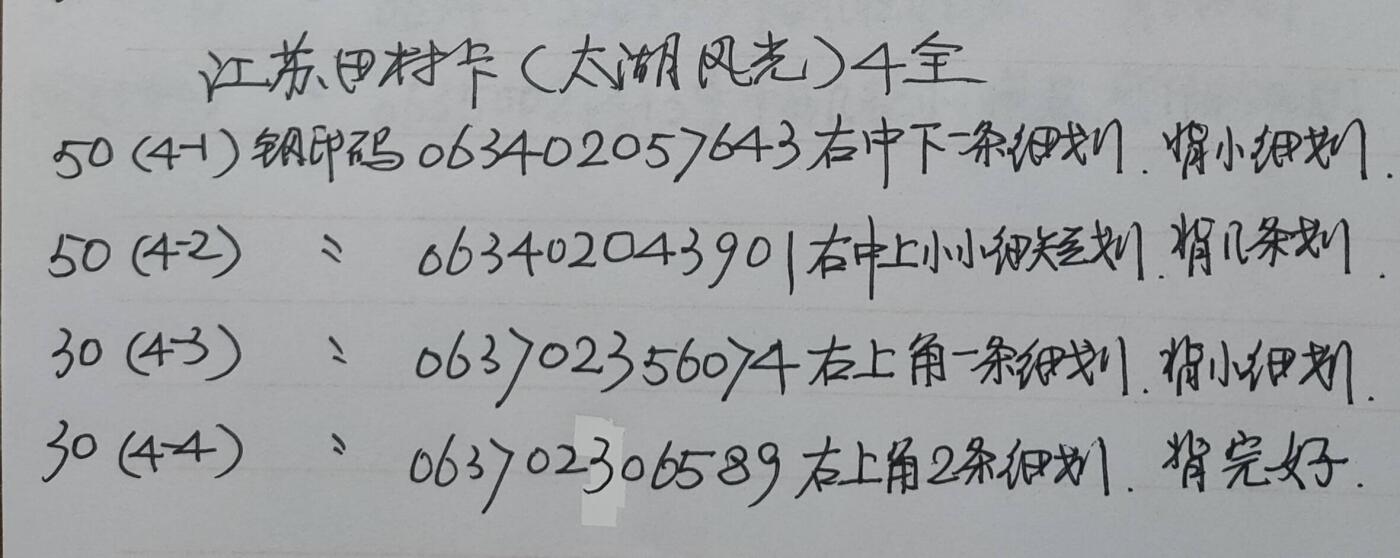 江苏田村卡(太湖风光)4全
50(4-1)钢印码 063402057643右中下一条细划.背小细划.
50(4-2) 〃 063402043901右中上小小细短划.背几条划.
30(4-3) 〃 063702356074右上角一条细划.背小细划.
30(4-4) 〃 063702306589右上角2条细划.背完好.